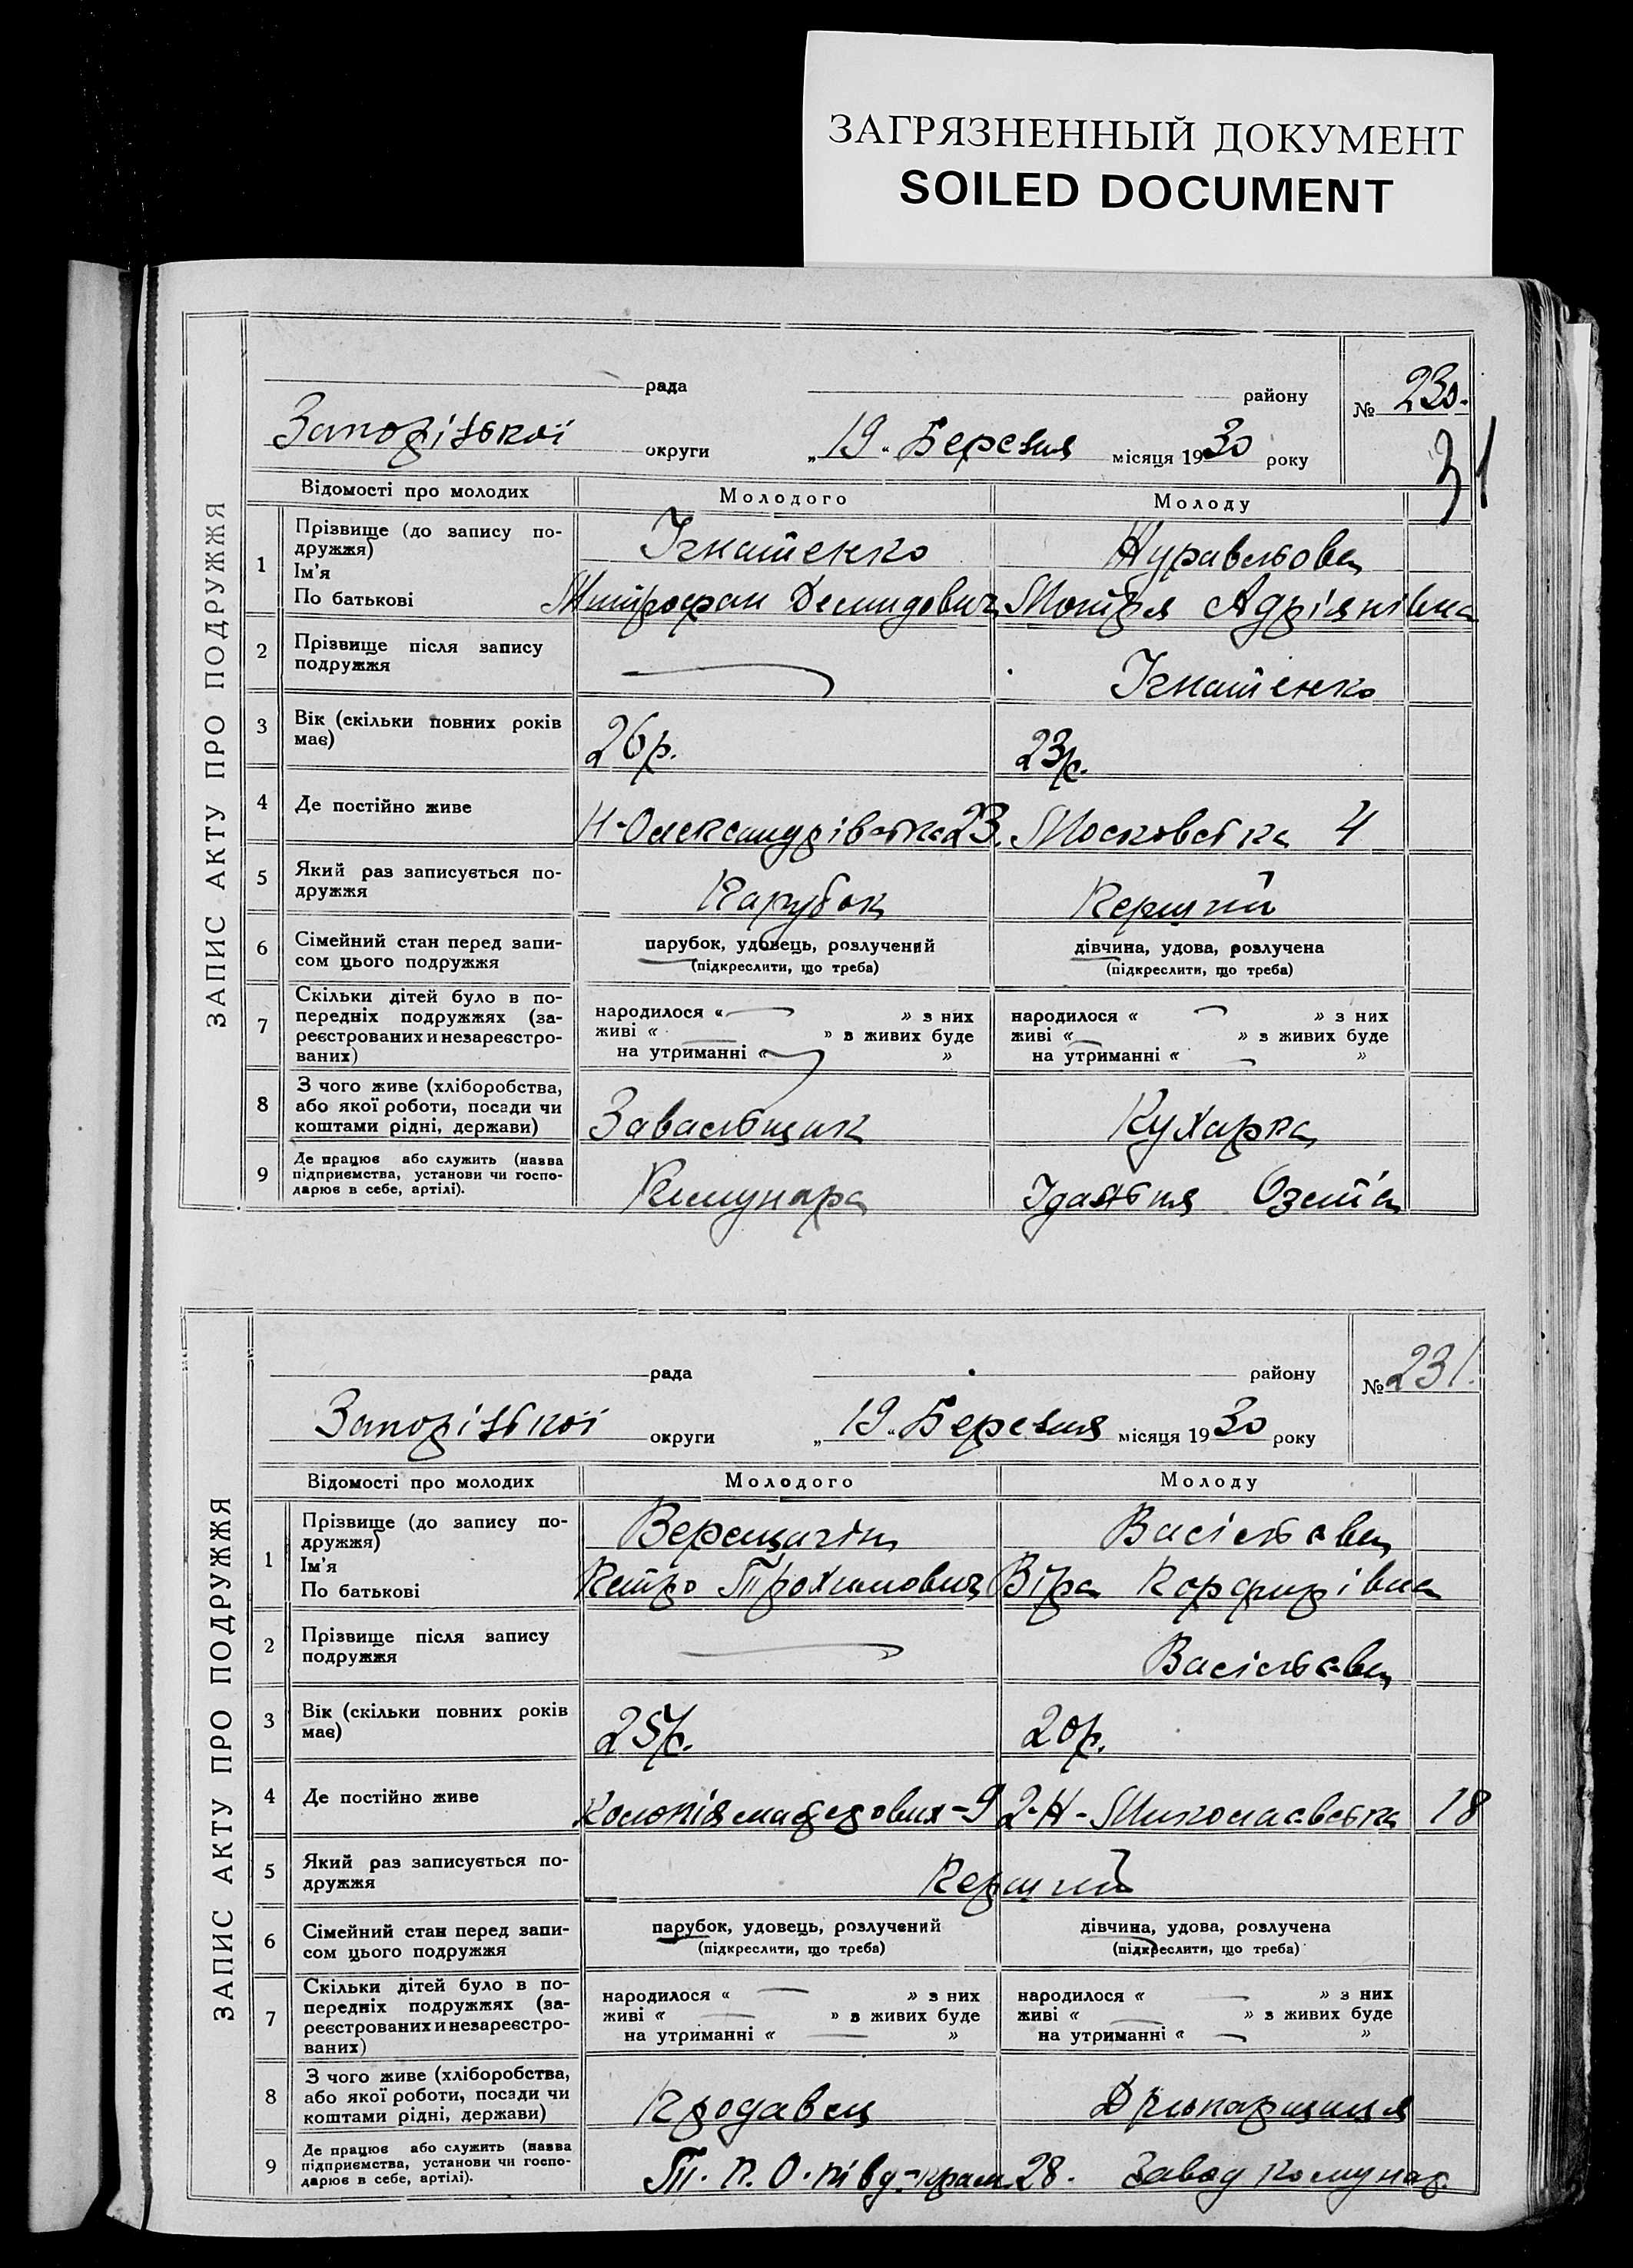 ЗАГРЯЗНЕННЫЙ ДОКУМЕНТ
SOILED DOCUMENT
ЗАПИС АКТУ ПРО ПОДРУЖЖЯ
рада району № 230.
Запорізької округи „19„ Березня місяця 1930 року
31
Відомості про молодих Молодого Молоду
1 Прізвище (до запису по-
дружжя) Ігнатенко Журавльова
Ім’я
По батькові Митрофан Демидович Мотря Адріянівна
2 Прізвище після запису
подружжя Ігнатенко
3 Вік (скільки повних років
має) 26р. 23р.
4 Де постійно живе Н-Олександрівська 23. Московська 4
5 Який раз записується по-
дружжя Парубок Перший
6 Сімейний стан перед запи-
сом цього подружжя
парубок, удовець, розлучений дівчина, удова, розлучена
(підкреслити, що треба) (підкреслити, що треба)
7 Скільки дітей було в по-
передніх подружжях (за-
реєстрованих и незареєстро-
ваних)
народилося « » з них народилося « » з них
живі « » в живих буде живі « » з живих буде
на утриманні « » на утриманні « »
8 З чого живе (хліборобства,
або якої роботи, посади чи
коштами рідні, держави) Завальщик Кухарка
9 Де працює або служить (назва
підприємства, установи чи госпо-
дарює в себе, артілі). Комунара Їдальня
ЗАПИС АКТУ ПРО ПОДРУЖЖЯ
рада району № 231.
Запорізької округи „19„ Березня місяця 1930 року
Відомості про молодих Молодого Молоду
1 Прізвище (до запису по-
дружжя) Верещагін Васільєва
Ім’я
По батькові Петро Трохимович Віра Порфирівна
2 Прізвище після запису
подружжя Васільєва
3 Вік (скільки повних років
має) 25р. 20р.
4 Де постійно живе Колонія -9 2-Н-Миколаєвська 18
5 Який раз записується по-
дружжя Перший
6 Сімейний стан перед запи-
сом цього подружжя
парубок, удовець, розлучений дівчина, удова, розлучена
(підкреслити, що треба) (підкреслити, що треба)
7 Скільки дітей було в по-
передніх подружжях (за-
реєстрованих и незареєстро-
ваних)
народилося « » з них народилося « » з них
живі « » в живих буде живі « » з живих буде
на утриманні « » на утриманні « »
8 З чого живе (хліборобства,
або якої роботи, посади чи
коштами рідні, держави) Продавец
9 Де працює або служить (назва
підприємства, установи чи госпо-
дарює в себе, артілі). 28. Завод Комунар.